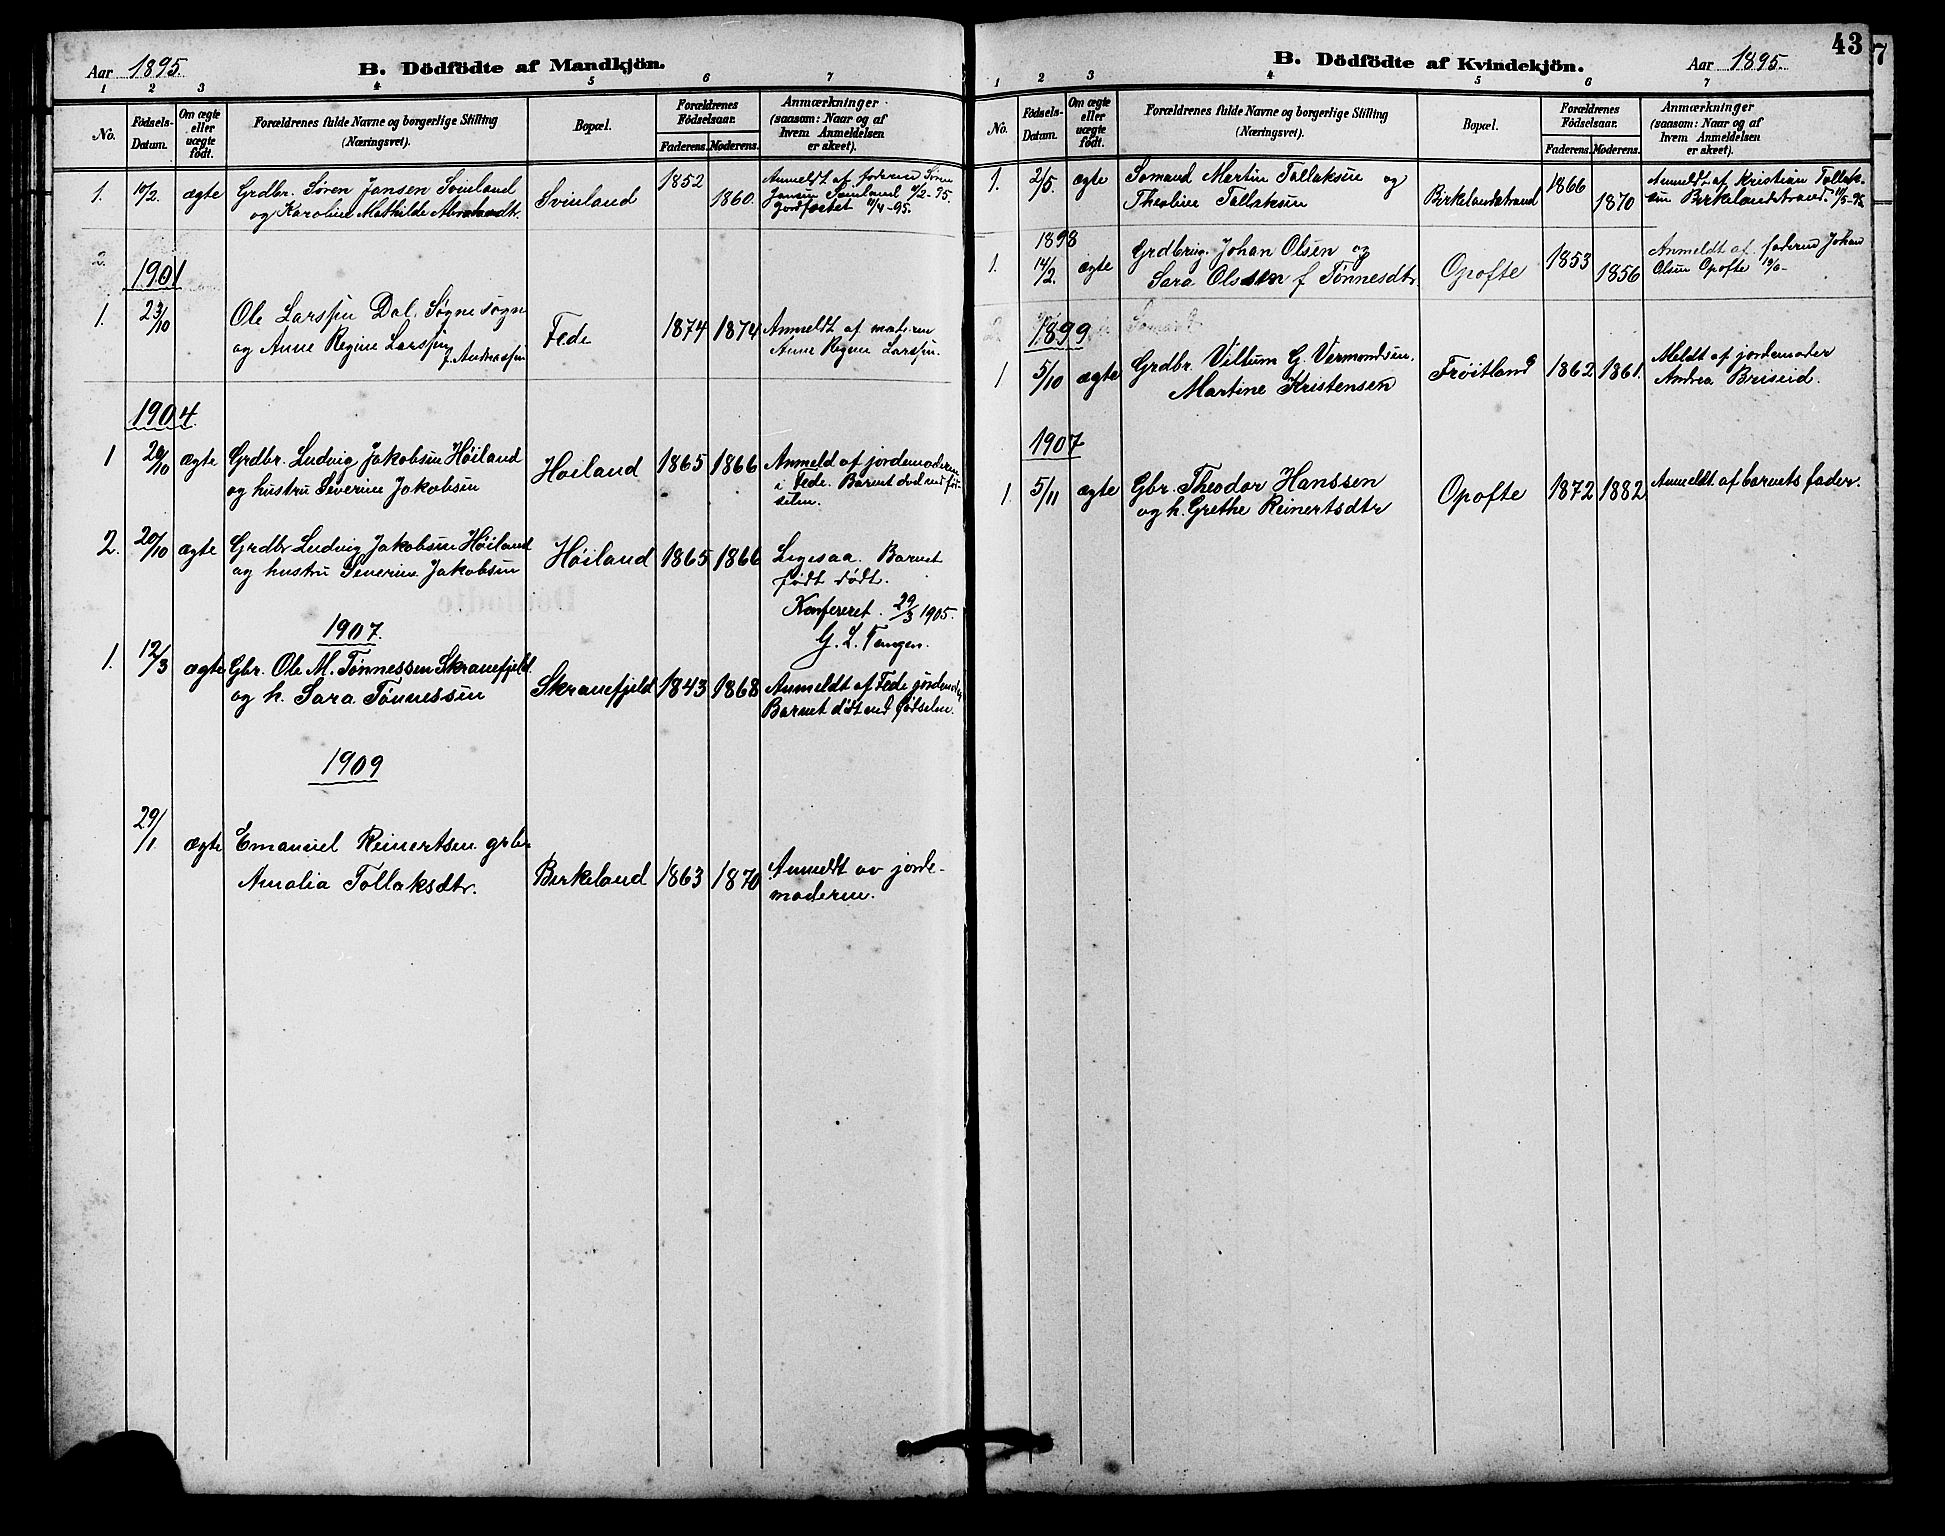 Aar 1895.
B. Dödfödte af Mandkjön.
1 2 3 4 5 6 7
No.
Födsels-
Datum.
Om ægte
eller
uægte
födt.
Forældrenes fulde Navne og borgerlige Stilling
(Næringsvei).
Bopæl.
Forældrenes
Födselsaar.
Faderens. Moderens.
Anmærkninger
(saasom: Naar og af
hvem Anmeldelsen
er skeet).
1. 10/2. ægte Grdbr. Søren Jansen Svinland
og Karoline Mathilde
Svinland 1852 1860.
Anmeldt af faderen Søren
Jansen Svinland
Jordfæstet 11/4-95.
2.
1901
1. 23/10 Ole Larssen Dal. Søgne sogn
og Anne Regine Larssen
f. Andreassen
Fede 1874 1874
Anmeldt af moderen
Anne Regine Larssen.
1904.
1 20/10 ægte Grdbr. Ludvig Jakobsen Höiland
og hustru Severine Jakobsen
Höiland 1865 1866
Anmeld af jordemoderen
i Fede. Barnet död ved föd-
selen.
2. 20/10 ægte Grdbr Ludvig Jakobsen Höiland
og hustru Severine Jakobsen
Höiland 1865 1866
Ligesaa. Barnet
født dødt.
Konfereret. 29/3 1905.
G. L. Tangen.
1907.
1. 12/3 ægte Gbr. Ole M. Tønnessen Skranefjeld
og h. Sara Tønnessen
Skranefjeld 1843 1868
Anmeldt af Fede jordemoder
Barnet dødt ved fødselen.
1909
29/1. ægte Emanuel Reinertsen grbr
Amalia Tollaksdtr.
Birkeland 1863 1870
Anmeldt av jorde-
moderen.
43
B. Dödfödte af Kvindekjön.
Aar 1895.
1 2 3 4 5 6 7
No.
Födsels-
Datum.
Om ægte
eller
uægte
födt.
Forældrenes fulde Navne og borgerlige Stilling
(Næringsvei).
Bopæl.
Forældrenes
Födselsaar.
Faderens. Moderens.
Anmærkninger
(saasom: Naar og af
hvem Anmeldelsen
er skeet).
1. 2/5. ægte Sømand Martin Tallaksen og
Theoline Tallaksen
Birkelandstrand 1866 1870
Anmeldt af Kristian Tallak-
sen Birkelandstrand.
1898
1. 14/2. ægte Grdbrug. Johan Olsen og
Sara Olsen f Tönnesdtr.
Opofte 1853 1856
Anmeldt af faderen Johan
Olsen Opofte
1899
1 5/10 ægte Grdbr. Viltum G. Vermondsen.
Martine Kristensen
Fröitland 1862 1861.
Meldt af jordemoder
Andrea Briseid.
1907
1. 5/11 ægte Gbr. Theodor Hanssen
og h. Grethe Reinertsdtr
Opofte 1872 1882
Anmeldt af barnets fader.
7